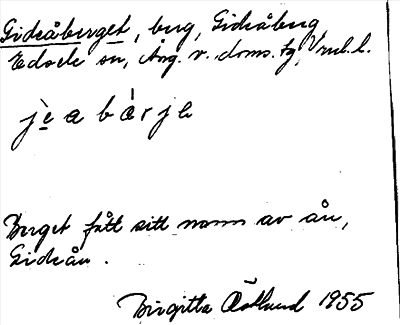 Gideåberget, berg, Gideåberg
Edsele sn, Ång. v. doms. tg, Vnl. l.
jè a b à r j e
Berget fått sitt namn av ån,
Gideån.
Birgitta Östlund 1955